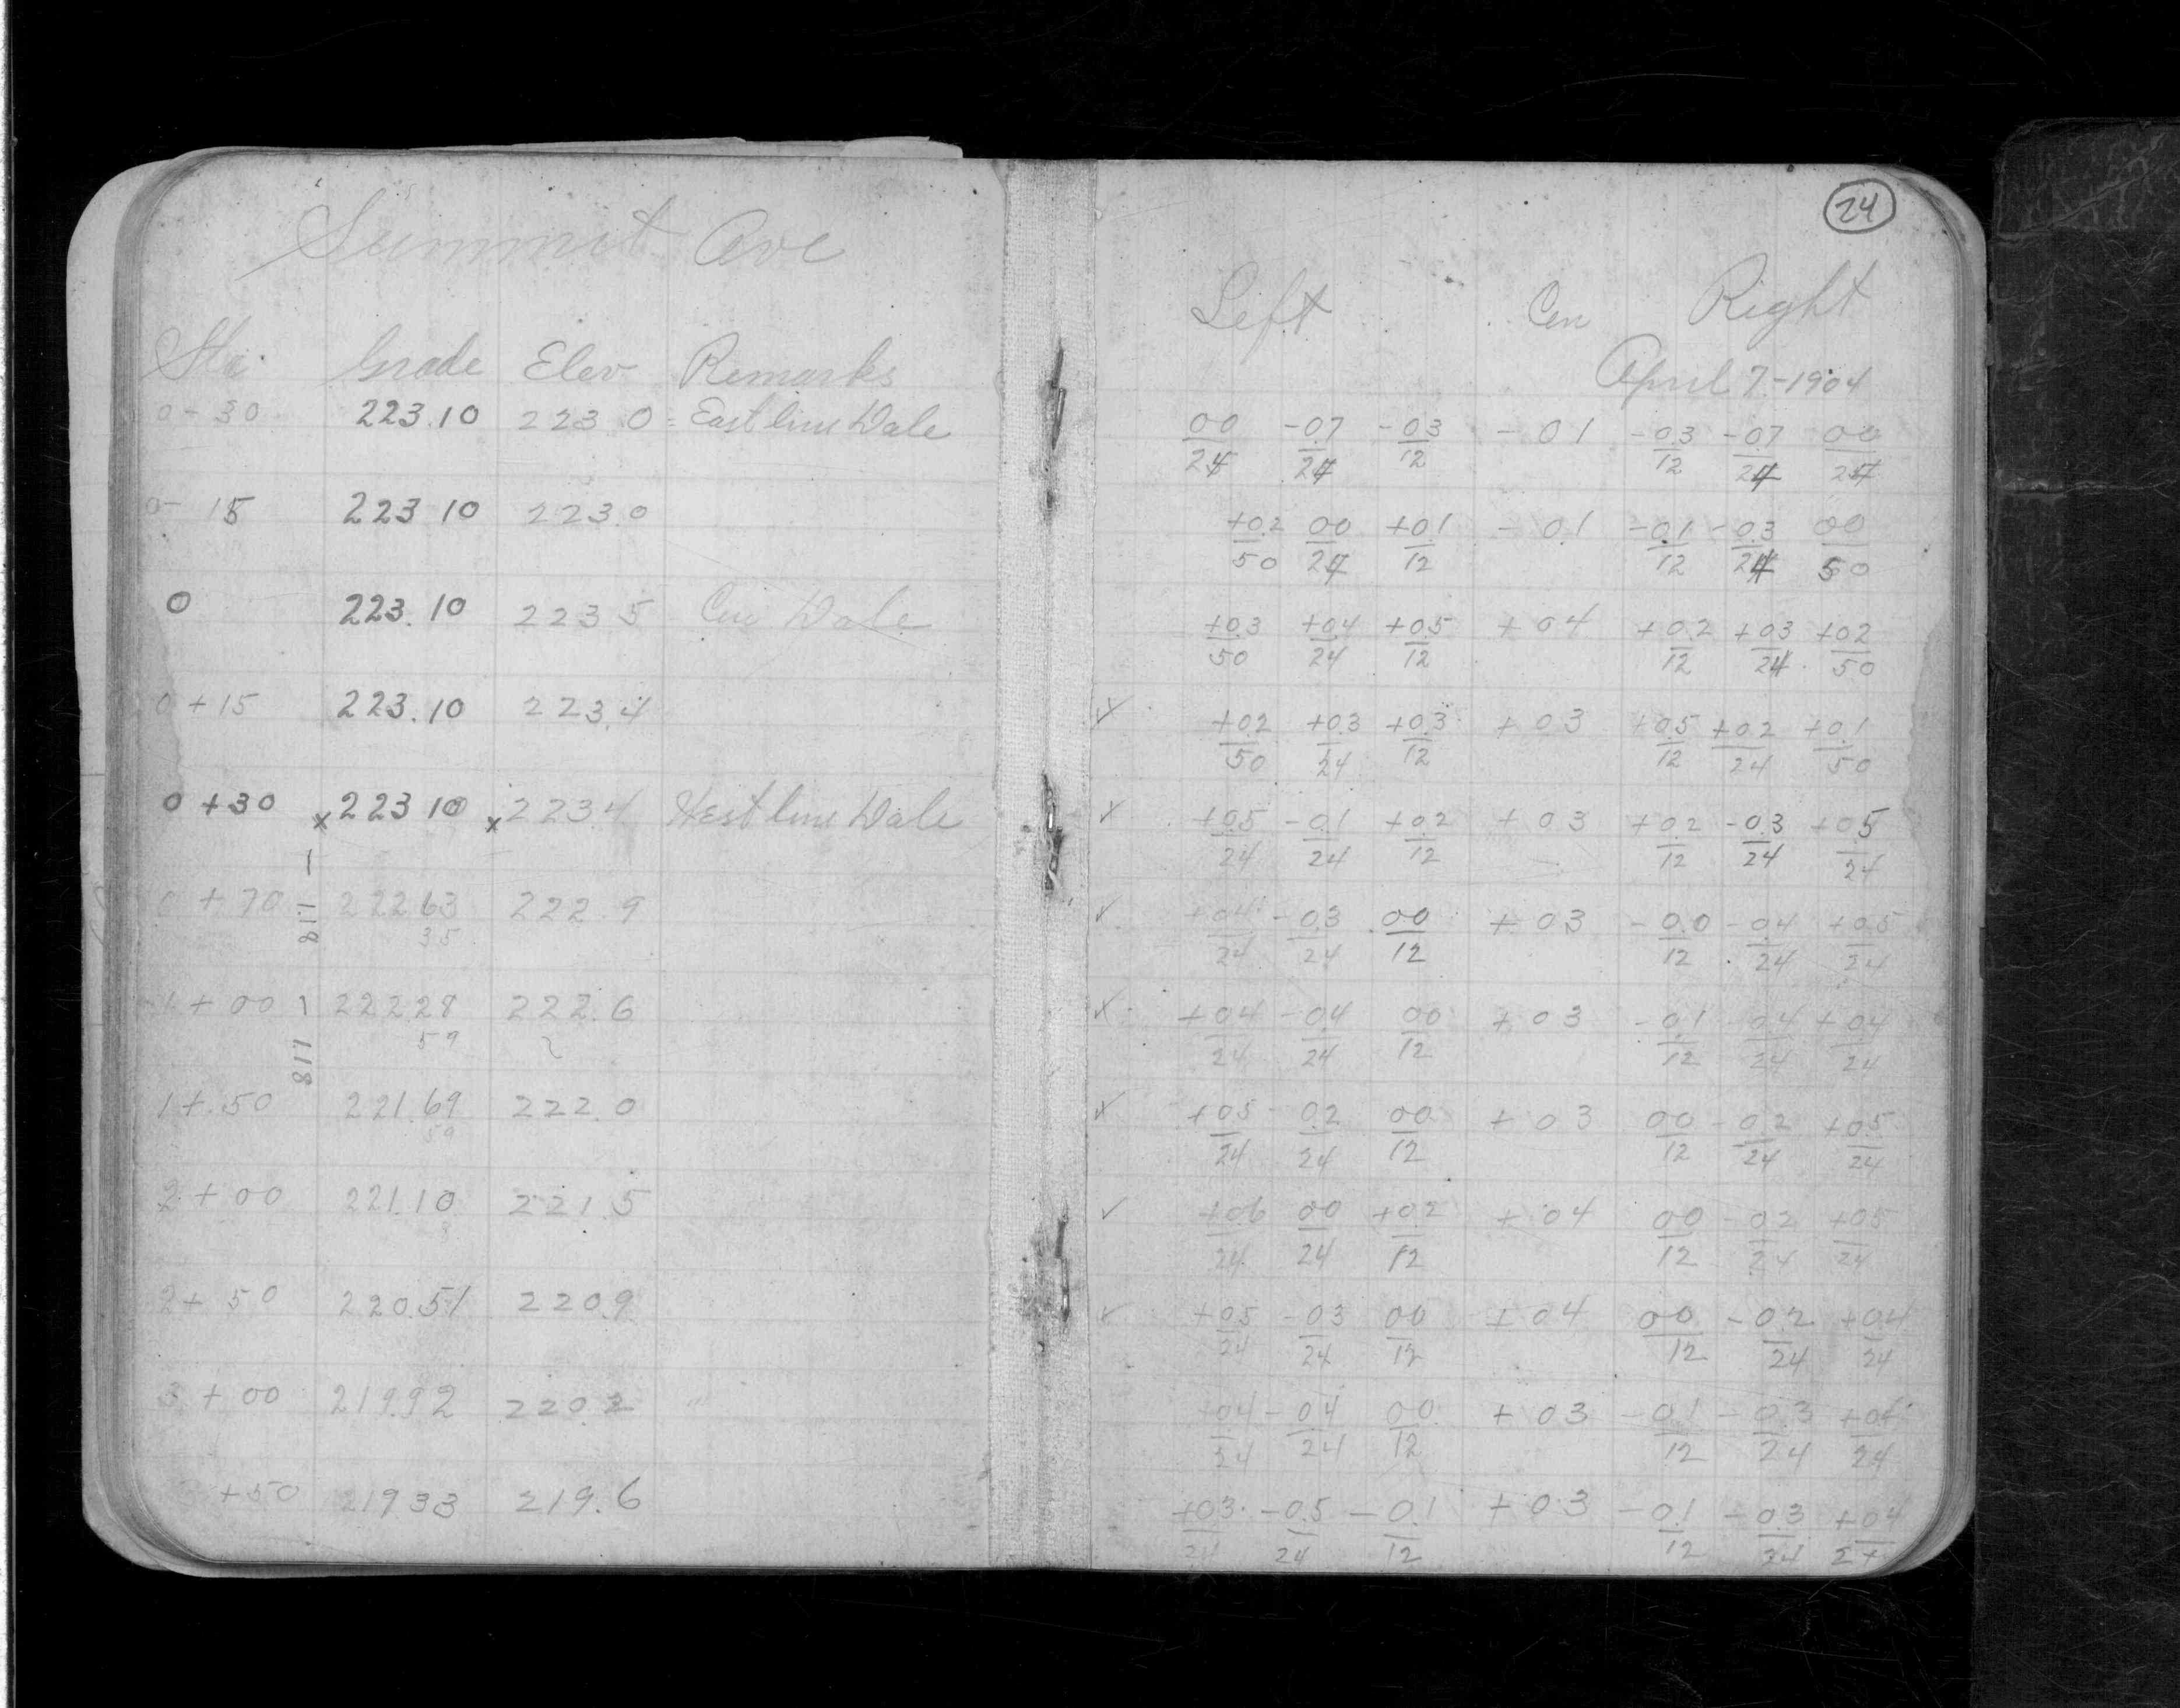 Summit Ave
Sta. Grade Elev Remarks
0-30 223.10 223 0 = East line Dale
0- 15 223 10 223.0
0 223.10 223 5 Cen Dale
0+15 223.10 223.4
0+30 x 223 10 x 223.4 West line Dale
— 1.18
0+70 222 63 222.9
35
1+00 222 28 222.6
59
1.18
1+.50 221.69 222.0
59
2+00 221.10 221.5
2+50 220.51 220.9
3+00 219.92 220.2 "
+50 219 33 219.6
24
Left Cen Right
April 7-1904
00/24 -0.7/24 -0.3/12 -0 1 -0.3/12 -0.7/24 00/24
+0.2/50 00/24 +0.1/12 -0.1 -0.1/12 -0.3/24 00/50
+0.3/50 +0.4/24 +0.5/12 +0 4 +0.2/12 +0.3/24 +0.2/50
✓ +0.2/50 +0.3/24 +0.3/12 +0 3 +0.5/12 +0.2/24 +0.1/50
✓ +0.5/24 -0.1/24 +0.2/12 +0 3 +0.2/12 -0.3/24 +0.5/24
✓ +0.4/24 -0.3/24 00/12 +0 3 -0.0/12 -0.4/24 +0.5/24
✓ +0.4/24 -0.4/24 00/12 +0 3 -0.1/12 -0.4/24 +0.4/24
✓ +0.5/24 -0.2/24 00/12 +0 3 00/12 -0.2/24 +0.5/24
✓ +0.6/24 00/24 +0.2/12 +0 4 00/12 -0.2/24 +0.5/24
✓ +0.5/24 -0.3/24 00/12 +0 4 00/12 -0.2/24 +0.4/24
+0.4/24 -0.4/24 00/12 +0 3 -0.1/12 -0.3/24 +0.4/24
+0.3/24 -0.5/24 -0.1/12 +0 3 -0.1/12 -0.3/24 +0.4/24